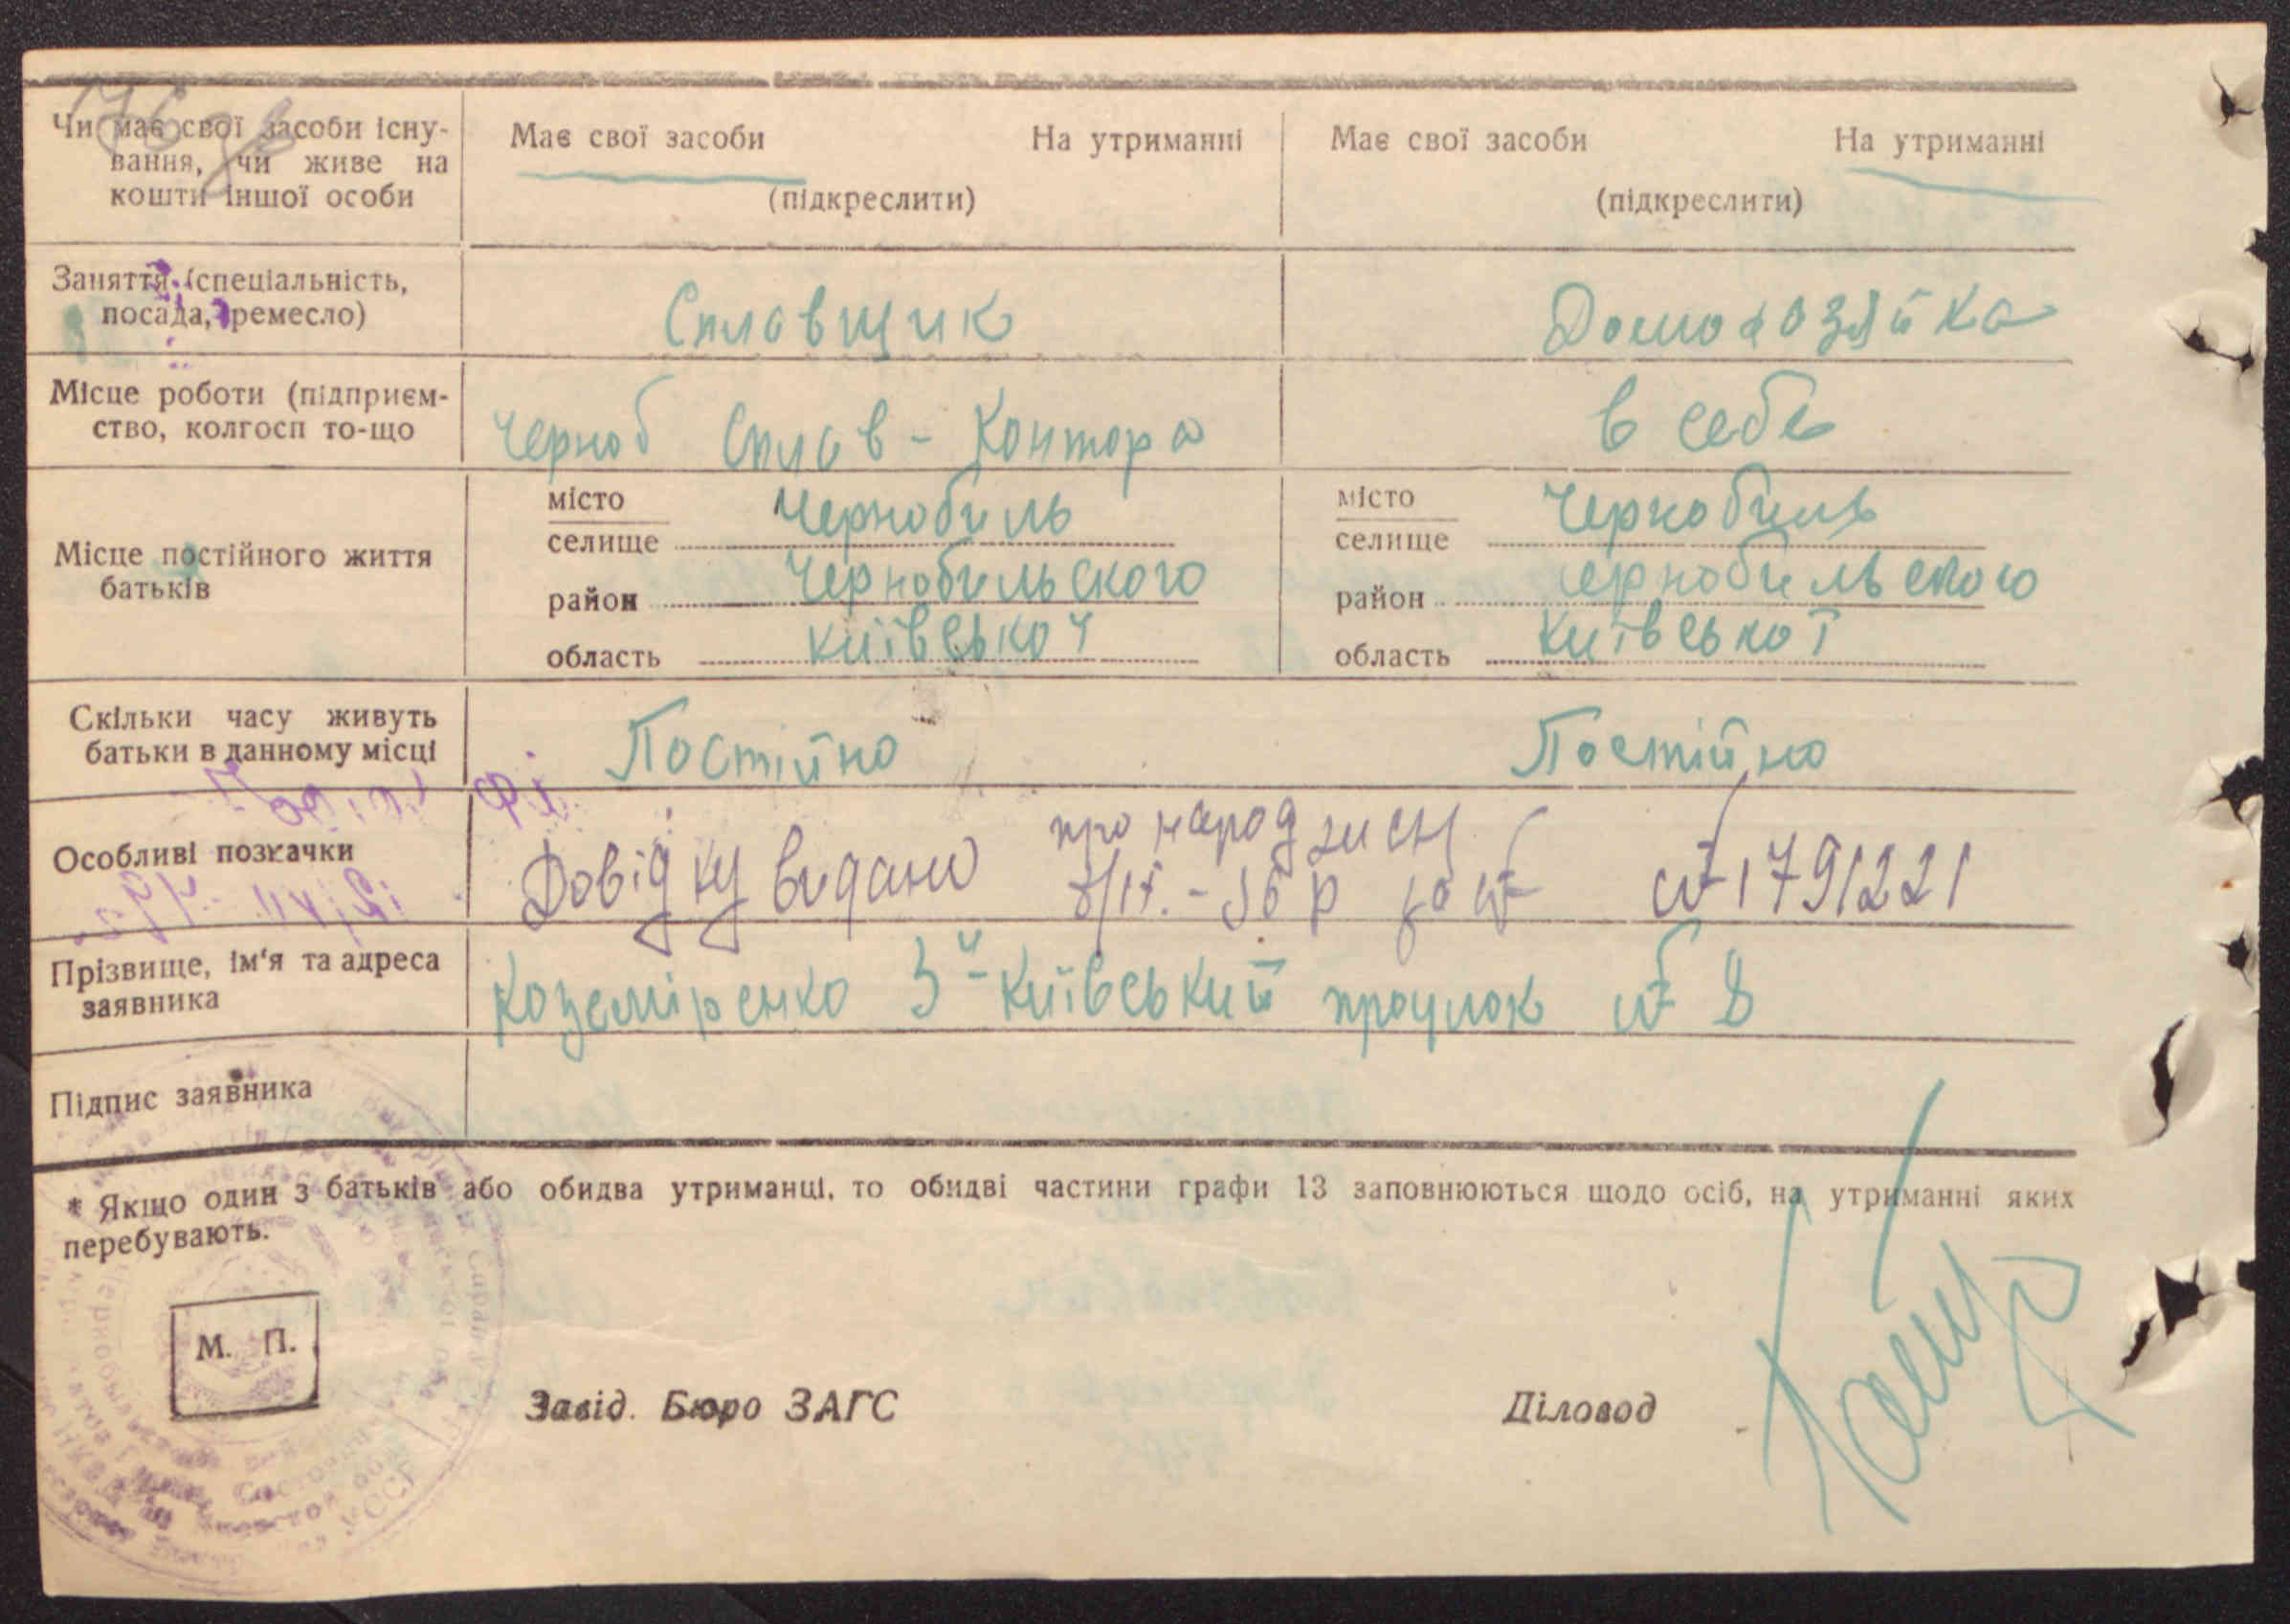 Чи має свої засоби існу-
вання, чи живе на
кошти іншої особи
Має свої засоби На утриманні
(підкреслити)
Має свої засоби На утриманні
(підкреслити)
Заняття (спеціальність,
посада, ремесло)
Сплавщик
Домохозяйка
Місце роботи (підприєм-
ство, колгосп то-що
Черноб Сплав-Контора
в себе
Місце постійного життя
батьків
місто
селище Чернобиль
район Чернобильского
область київської
місто
селище Чернобиль
район Чернобильского
область Київської
Скільки часу живуть
батьки в данному місці
Постійно
Постійно
Особливі позначки
про народження
Довідку видано за № №1791221
Прізвище, ім'я та адреса
заявника
Коземіренко 3й-Київський проулок № 8
Підпис заявника
* Якщо один з батьків або обидва утриманці, то обидві частини графи 13 заповнюються щодо осіб, на утриманні яких
перебувають.
М. П.
Завід. Бюро ЗАГС
Діловод